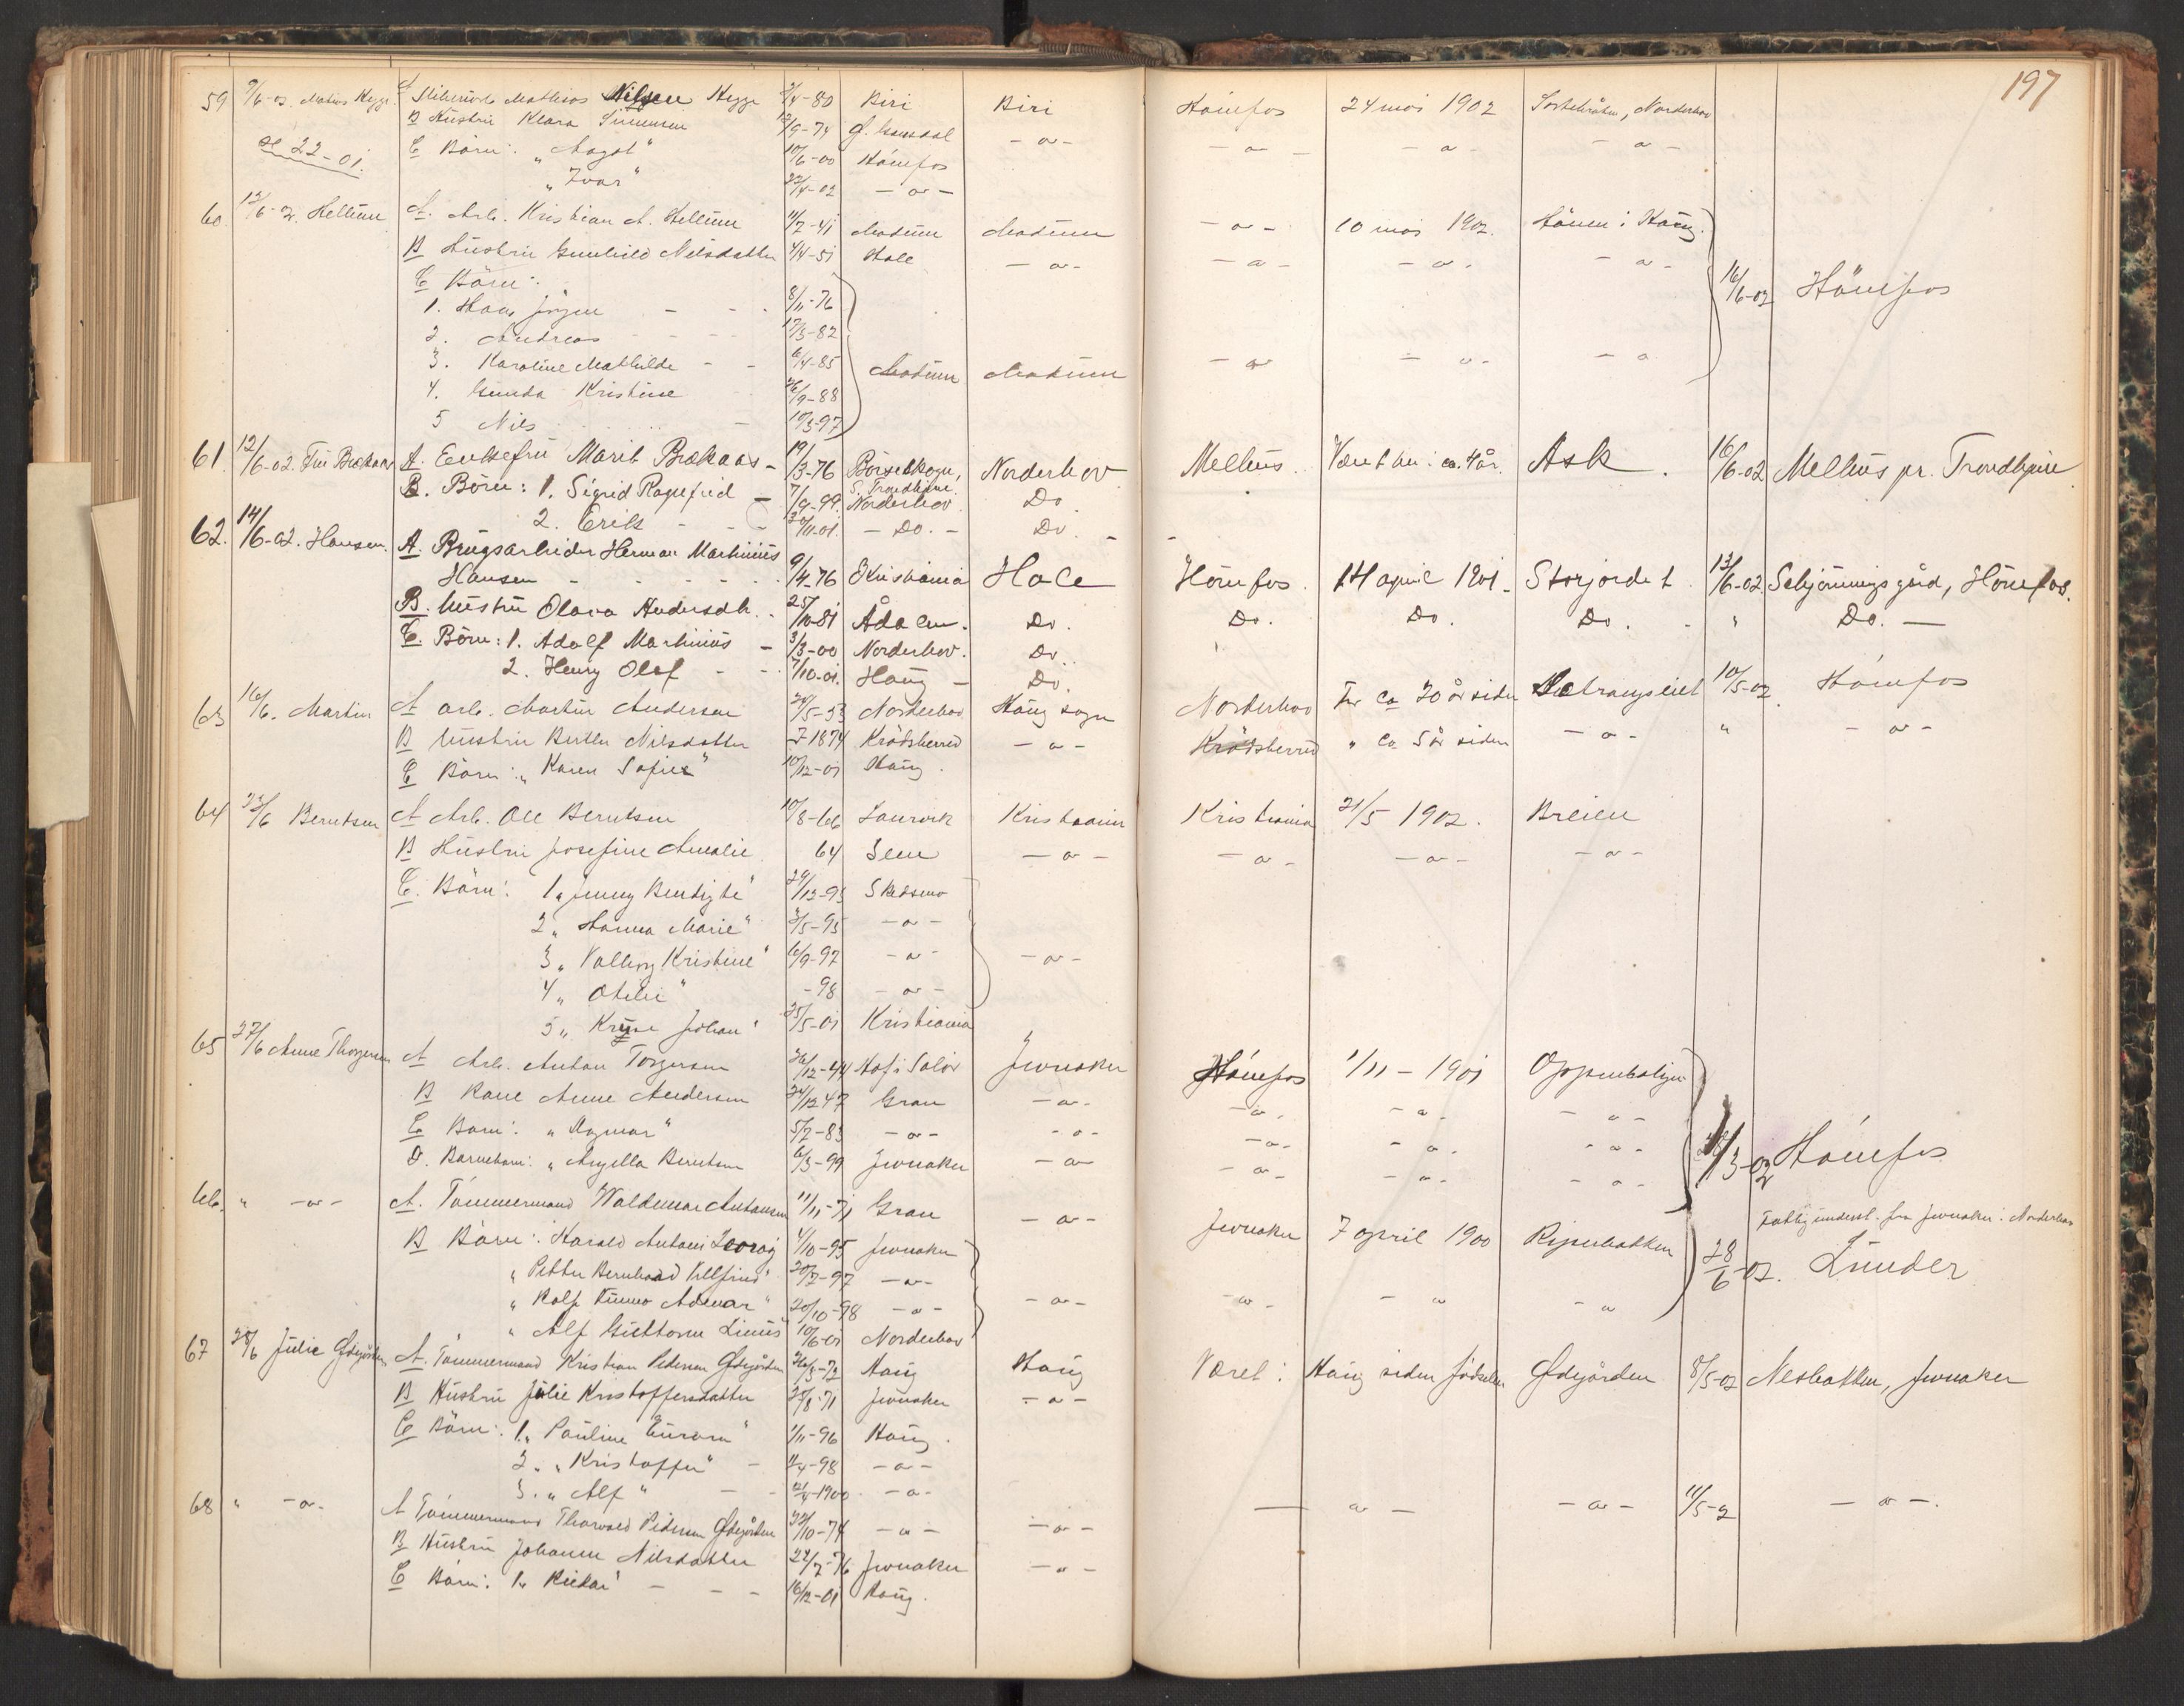 197
59 9/6-02. Matias Hygge. A Sliberiarb. Mathias Nilsen Hygge 2/4-80 Biri Biri Hönefos 24 mai 1902 Norderhov
B Hustru Klara Simensen 12/9-74 G. -a- -a- -a- -a-
se 22-01. C Börn: "Aagot" 10/6-00 Hönefos
"Ivar" 22/4-02 -a-
60. 12/6-02. Hellum A. Arb. Kristian A. Hellum 11/7-41 Modum Modum -a- 10 mai 1902. Hönen i Haug.
B Hustru Gunhild Nilsdatter 4/4-51 Hole -a- -a- -a- -a- 16/6-02 Hönefos
C Börn:
1. Hans Jörgen - - 8/11-76
2. Andreas - - 17/3-82
3. Karoline Mathilde - - 6/4-85 Modum Modum -a- -a- -a
4. Gunda Kristine 26/9-88
5 Nils - 10/3-97
61. 12/6-02. Fru Brekaas A. Enkefru Marit Brekaas - 19/3-76 Börseskogn, S. Trondhjem. Norderhov Melhus. Været her i ca. 4 år. Ask. 16/6-02 Melhus pr. Trondhjem
B. Börn: 1. Sigrid Ragnfrid - 7/9-99. Norderhov. Do
2. Erik - - 20/11-01. - Do. - Do. -
62. 14/6-02. Hansen. A. Brugsarbeider Herman Martinius
Hansen - - - - 9/4-76 Kristiania Hole Hönefos. 14 april 1901. Storjordet 13/6-02 Schjönningsgård, Hönefos.
B. Hustru Olava Andersdt. - 25/10-81 Ådalen. Do. Do. Do. Do. - " Do. -
C. Börn: 1. Adolf Martinius - 3/3-00 Norderhov. Do.
2. Henry Olaf - - 7/10-01. Haug - Do.
63 16/6. Martin A arb. Martin Andersen 24/5-53 Norderhov Haug sogn Norderhov For ca 20 år siden 10/5-02 Hönefos
B hustru Berthe Nilsdatter 7 1874 Krödsherred -a- Krödsherred " ca 5 år siden -a- " -a-
C Börn: "Karen Sofie" 10/12-01 Haug.
64 23/6 Berntsen A Arb. Ole Berntsen 10/8-66 Laurvik Kristiania Kristiania 21/5 1902. Breien
B Hustru Josefine Amalie 64 Sem -a- -a- -a- -a-
C. Börn: 1 "Jenny Bendigte" 29/12-93 Skedsmo
2 "Hanna Marie" 3/5-95 -a-
3 "Valborg Kristine" 6/9-97 -a- -a-
4 "Otilie" -98 -a-
5 " Johan" 25/5-01 Kristiania
65 27/6 Anne Thorgersen A Arb. Anton Torgersen 26/12-44 Hof i Solör Jevnaker Hönefos 1/11-1901 Oppenhalgen
B Kone Anne Andersen 24/12 47 Gran -a- -a- -a- -a-
C Barn: "Ragnar" 5/7-83 -a- -a- -a- -a- -a- 3-02 Hönefos
D. Barnebarn: "Angella Berntsen 6/3-99 Jevnaker -a- -a- -a- -a-
66. " -a- A. Tömmermand Waldemar Antonsen 11/11-71 Gran -a- Jevnaker 7 april 1900 Ringerbakken Fattigunderst. fra Jevnaker i Norderhov
B Börn: Harald Antoni Georg 4/10-95 Jevnaker 28/6-02. Lunder
"Petter Bernhard Vilfried" 20/7-97 -a-
"Rolf Kinno Admar" 20/10-98 -a- -a- -a- -a -a
"Alf Guttorm Linus" 10/6-01 Norderhov
67 28/6 Julie Ødegården A. Tömmermand Kristian Pedersen Ødegården 26/3-72 Haug Haug Været i Haug siden födselen Ødegården 8/5-02 Nesbakken, Jevnaker
B Hustru Julie Kristoffersdatter 25/8-71 Jevnaker -a-
C Börn: 1 "Pauline Aurora" 1/11-96 Haug.
2. "Kristoffer" - 2/4-98 -a-
3. "Alf" - - 12/4-1900 -a-
68 " -a- A Tömmermand Thorvald Pedersen Ødegården 22/10-74 -a- -a- - a - -a- 11/5-2 -a-.
B Hustru Johanne Nilsdatter 24/7-76 Jevnaker -a-
C Barn: 1. "Rickar" - - - 16/12-01 Haug.